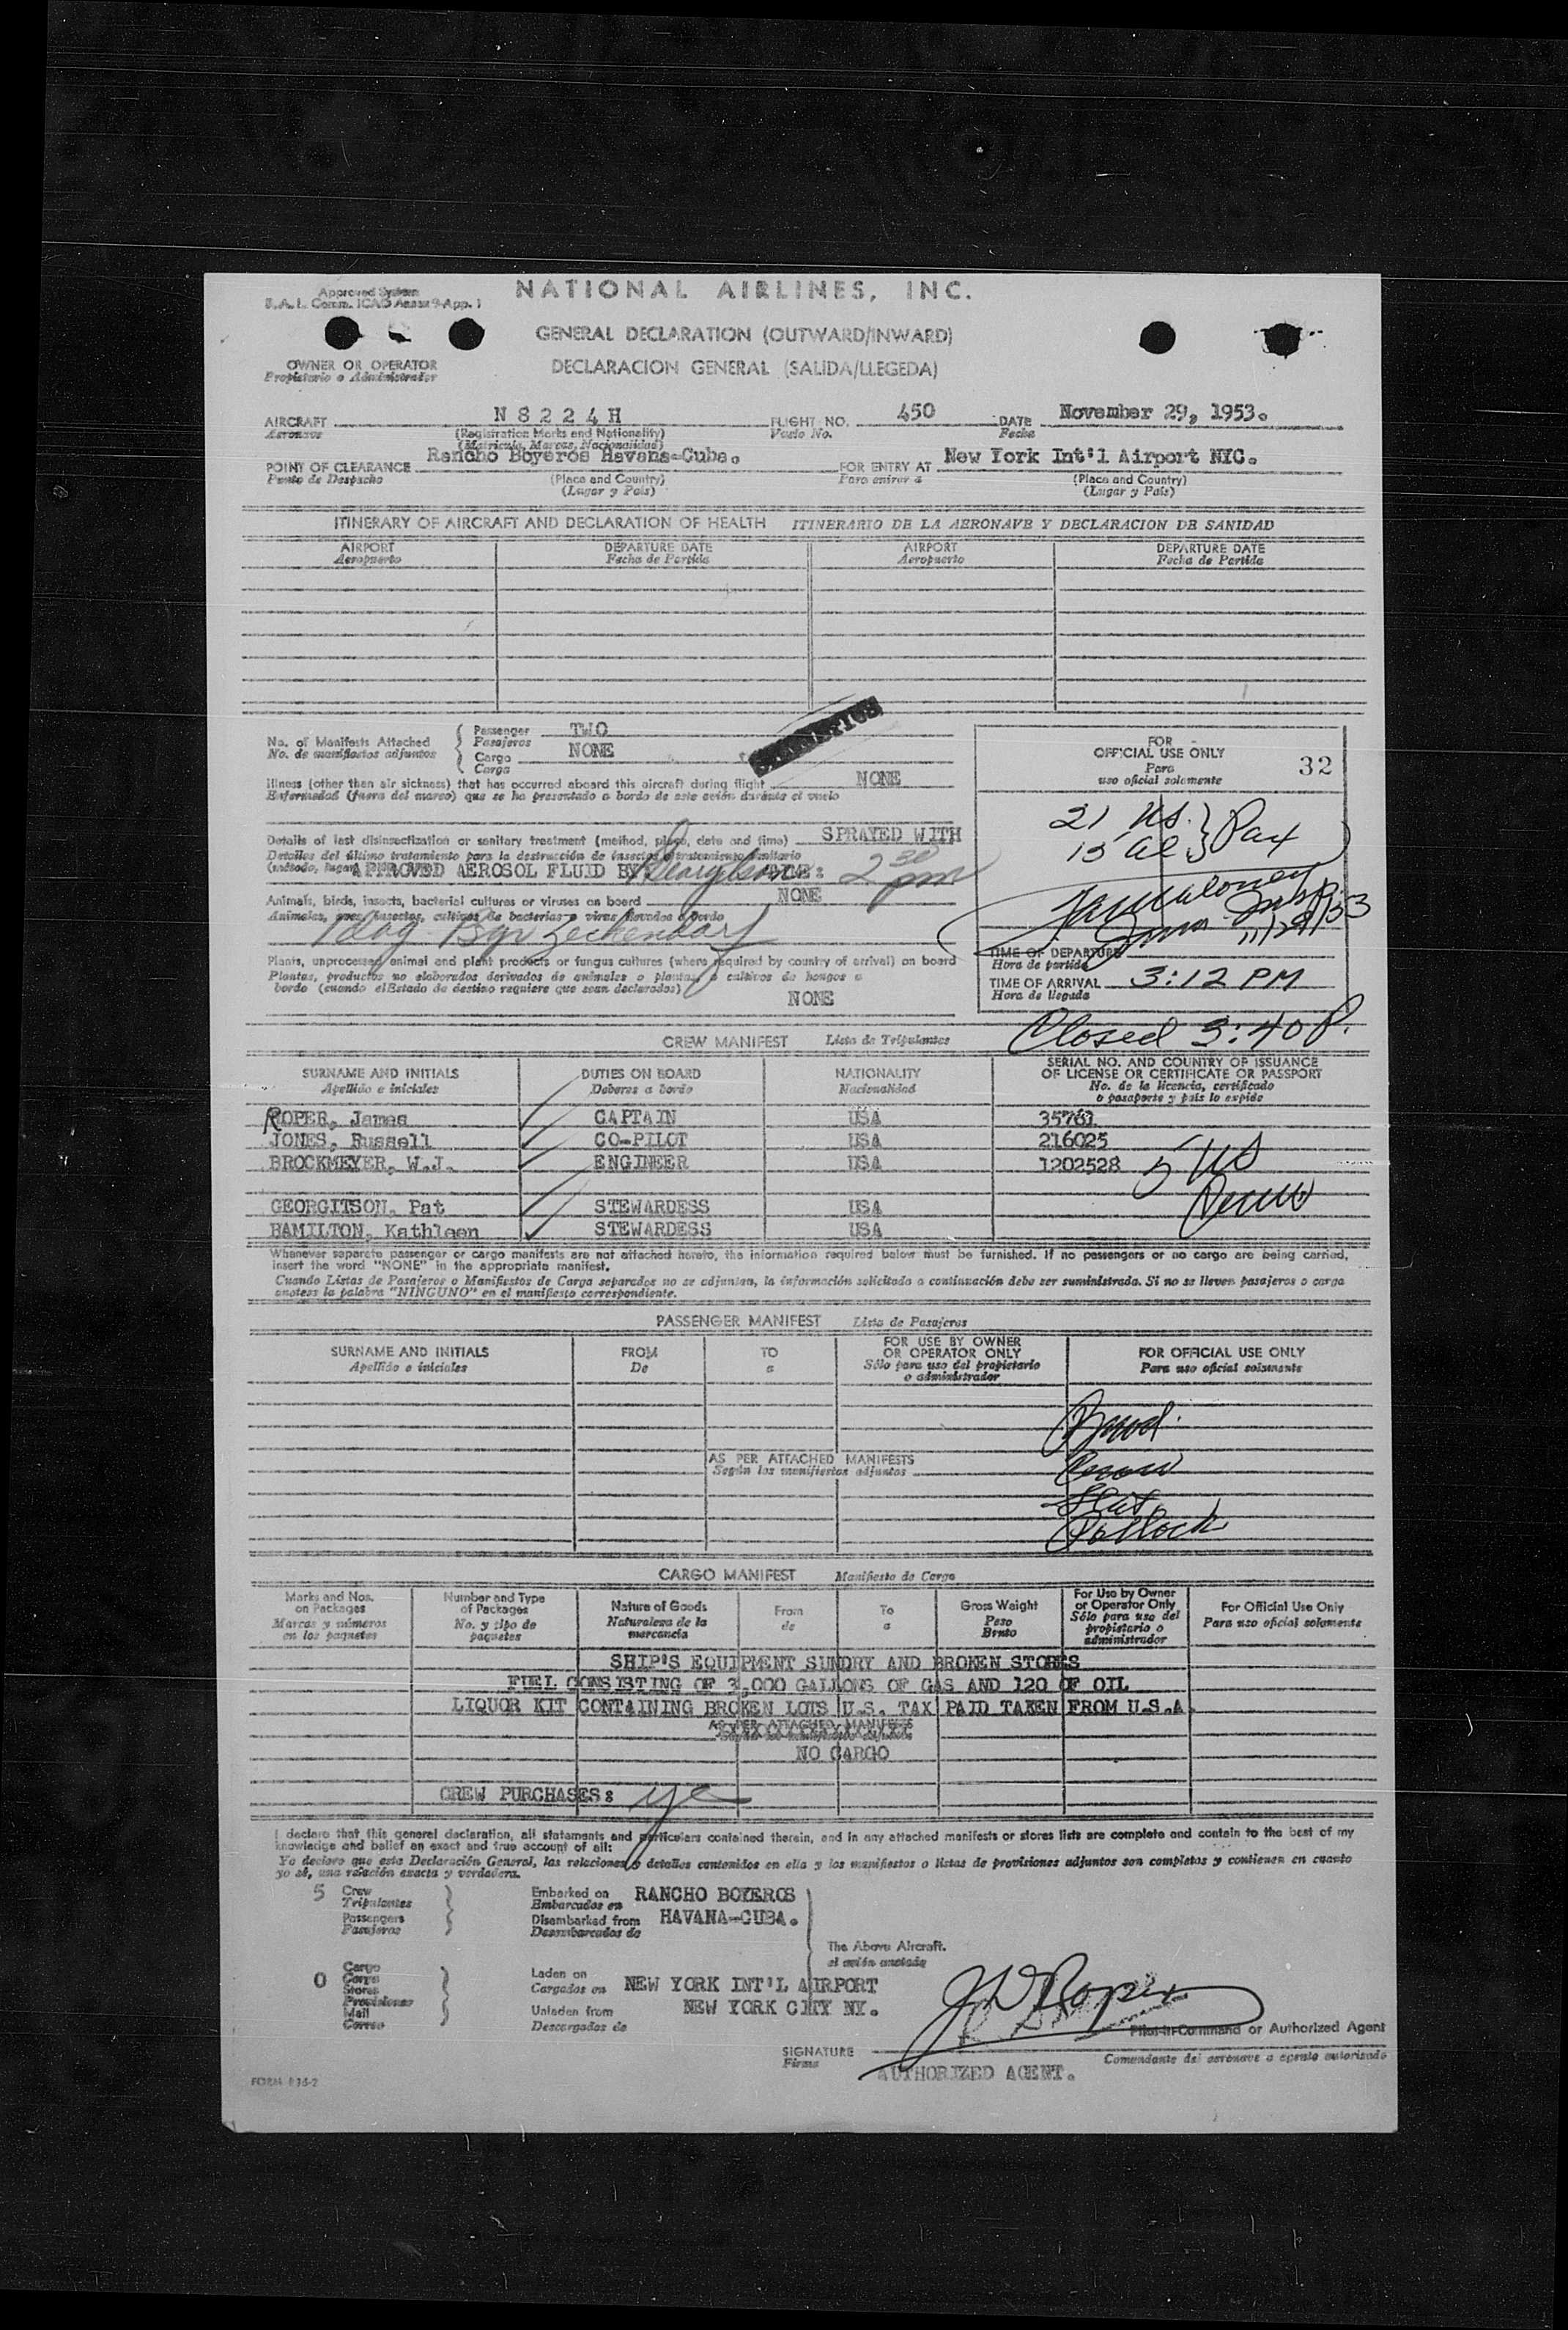 Approved System
NATIONAL AIRLINES, INC.
GENERAL DECLARATION (OUTWARD/INWARD)
DECLARACION GENERAL (SALIDA/LLEGEDA)
OWNER OR OPERATOR
Propietario o Administrador
AIRCRAFT N 8 2 2 4 H FLIGHT NO. 450 DATE November 29, 1953.
Aeronave (Registration Marks and Nationality) Vuelo No. Fecha
(Matricula, Marcas, Nacionalidad)
Rancho Boyeros Havana-Cuba. New York Int'l Airport NYC.
POINT OF CLEARANCE (Place and Country) FOR ENTRY AT (Place and Country)
Punto de Despacho (Lugar y País) Para entrar a (Lugar y País)
ITINERARY OF AIRCRAFT AND DECLARATION OF HEALTH ITINERARIO DE LA AERONAVE Y DECLARACION DE SANIDAD
AIRPORT DEPARTURE DATE AIRPORT DEPARTURE DATE
Aeropuerto Fecha de Partida Aeropuerto Fecha de Partida
No. of Manifests Attached
No. de manifiestos adjuntos
Passenger TWO
Pasajeros
Cargo NONE
Carga
Illness (other than air sickness) that has occurred aboard this aircraft during flight NONE
Enfermedad (fuera del mareo) que se ha presentado a bordo de este avión durante el vuelo
Details of last disinsectization or sanitary treatment (method, place, date and time) SPRAYED WITH
Detalles del último tratamiento para la destrucción de insectos o tratamiento sanitario
APPROVED AEROSOL FLUID BY 2 30 pm
Animals, birds, insects, bacterial cultures or viruses on board NONE
Animales, aves, insectos, cultivos de bacterias o virus llevados a bordo
1 dog
Plants, unprocessed animal and plant products or fungus cultures (where required by country of arrival) on board
Plantas, productos no elaborados derivados de animales o plantas, o cultivos de hongos a
bordo (cuando el Estado de destino requiere que sean declarados)
NONE
FOR
OFFICIAL USE ONLY
Para
uso oficial solamente
32
21 US
15 Al Pax
11/29/53
TIME OF DEPARTURE
Hora de partida
TIME OF ARRIVAL 3:12 PM
Hora de llegada
Closed 3:40 P.
CREW MANIFEST Lista de Tripulantes
SURNAME AND INITIALS DUTIES ON BOARD NATIONALITY SERIAL NO. AND COUNTRY OF ISSUANCE
OF LICENSE OR CERTIFICATE OR PASSPORT
Apellido e iniciales Deberes a bordo Nacionalidad No. de la licencia, certificado
o pasaporte y país lo expide
ROPER, James CAPTAIN USA 35761
JONES, Russell CO-PILOT USA 216025
BROCKMEYER, W.J. ENGINEER USA 1202528
5 US
GEORGITSON, Pat STEWARDESS USA
HAMILTON, Kathleen STEWARDESS USA
Whenever separate passenger or cargo manifests are not attached hereto, the information required below must be furnished. If no passengers or no cargo are being carried,
insert the word "NONE" in the appropriate manifest.
Cuando Listas de Pasajeros o Manifiestos de Carga separados no se adjuntan, la información solicitada a continuación debe ser suministrada. Si no se lleven pasajeros o carga
anotese la palabra "NINGUNO" en el manifiesto correspondiente.
PASSENGER MANIFEST Lista de Pasajeros
SURNAME AND INITIALS FROM TO FOR USE BY OWNER
OR OPERATOR ONLY FOR OFFICIAL USE ONLY
Apellido e iniciales De a Sólo para uso del propietario
o administrador Para uso oficial solamente
AS PER ATTACHED MANIFESTS
Según los manifiestos adjuntos
Pollock
CARGO MANIFEST Manifiesto de Carga
Marks and Nos.
on Packages
Marcas y números
en los paquetes
Number and Type
of Packages
No. y tipo de
paquetes
Nature of Goods
Naturaleza de la
mercancia
From
de
To
a
Gross Weight
Peso
Bruto
For Use by Owner
or Operator Only
Sólo para uso del
propietario o
administrador
For Official Use Only
Para uso oficial solamente
SHIP'S EQUIPMENT SUNDRY AND BROKEN STORES
FUEL CONSISTING OF 3,000 GALLONS OF GAS AND 120 OF OIL
LIQUOR KIT CONTAINING BROKEN LOTS U.S. TAX PAID TAKEN FROM U.S.A.
AS PER ATTACHED MANIFESTS
NO CARGO
CREW PURCHASES:
I declare that this general declaration, all statements and particulars contained therein, and in any attached manifests or stores lists are complete and contain to the best of my
knowledge and belief an exact and true account of all:
Yo declaro que esta Declaración General, las relaciones y detalles contenidos en ella y los manifiestos o listas de provisiones adjuntos son completos y contienen en cuanto
yo sé, una relación exacta y verdadera.
5 Crew
Tripulantes
Passengers
Pasajeros
Embarked on RANCHO BOYEROS
Embarcados en
Disembarked from HAVANA-CUBA.
Desembarcados de
The Above Aircraft.
el avión anotado
0 Cargo
Carga
Stores
Provisiones
Mail
Correo
Laden on
Cargados en NEW YORK INT'L AIRPORT
Unladen from NEW YORK CITY NY.
Descargados de
J D Roper
Pilot-in-Command or Authorized Agent
SIGNATURE
Firma
Comandante del aeronave o agente autorizado
AUTHORIZED AGENT.